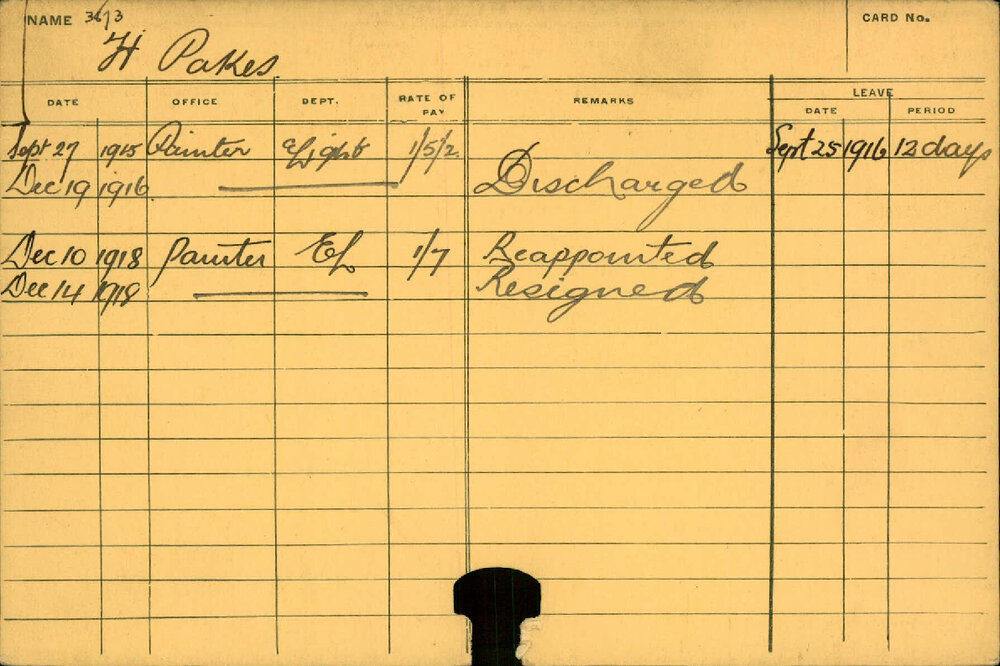 NAME 3673
H Pakes
CARD No.
DATE OFFICE DEPT. RATE OF PAY REMARKS LEAVE
DATE PERIOD
Sept 27 1915 Painter Light 1/5/2. Sept 25 1916 12 days
Dec 19 1916 Discharged
Dec 10 1918 Painter EL 1/7 Reappointed
Dec 14 1918 Resigned